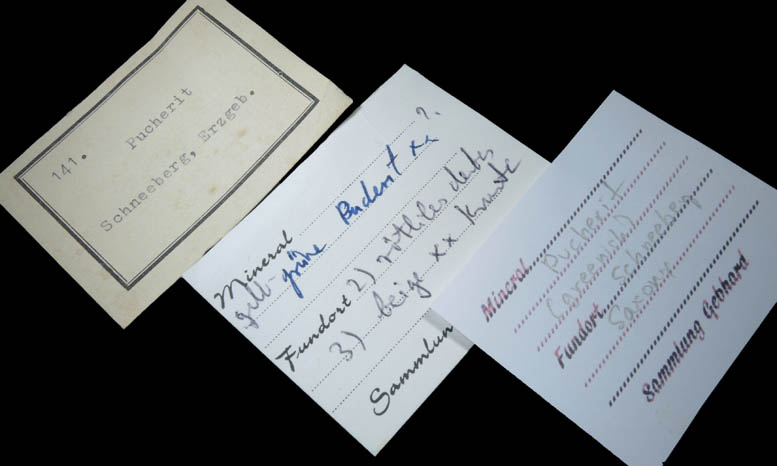 141. Pucherit
Schneeberg, Erzgeb.
Mineral
gelb-grüne Puderit xx ?.
Fundort 2) rötliches derbes
3) beige xx Kruste
Sammlun
Mineral Pucherit
Fundort Schneeberg
Saxony
Sammlung Gebhard